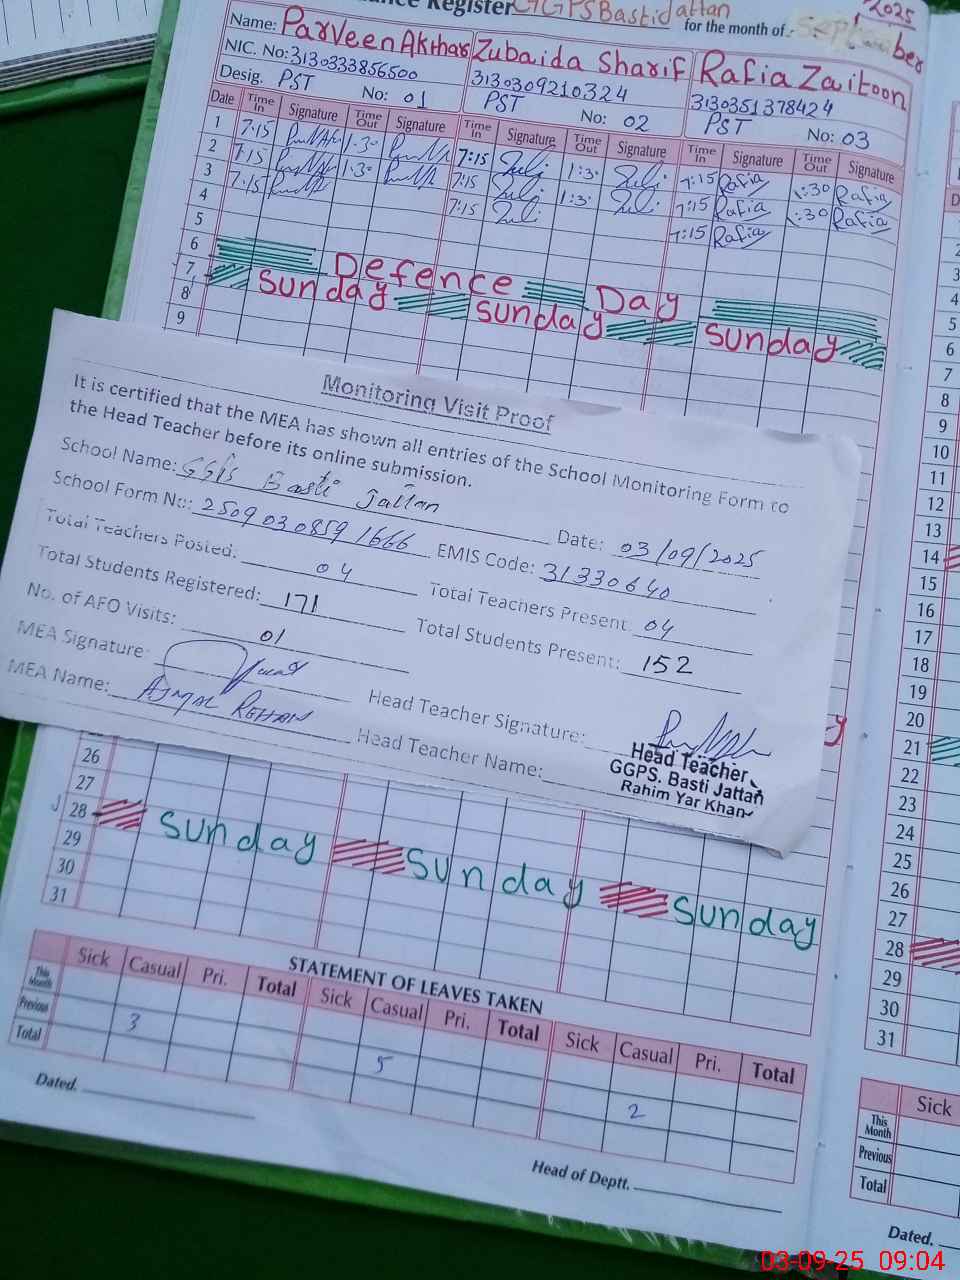 Register GGPS Basti Jattan for the month of september 2025
Name: Parveen Akthar Zubaida Sharif Rafia Zaitoon
NIC. No: 3130333856500 3130309210324 3130351378424
Desig. PST No: 01 PST No: 02 PST No: 03
Date Time In Signature Time Out Signature Time In Signature Time Out Signature Time In Signature Time Out Signature
1 7:15 1:30 7:15 1:30 7:15 Rafia 1:30 Rafia
2 7:15 1:30 7:15 1:30 7:15 Rafia 1:30 Rafia
3 7:15 7:15 7:15 Rafia
4
5
6 Defence Day
7 Sunday Sunday Sunday
8
9
Monitoring Visit Proof
It is certified that the MEA has shown all entries of the School Monitoring Form to
the Head Teacher before its online submission.
School Name: GGPS Basti Jattan Date: 03/09/2025
School Form No: 25090308591666 EMIS Code: 31330640
Total Teachers Posted: 04 Total Teachers Present: 04
Total Students Registered: 171 Total Students Present: 152
No. of AFO Visits: 01
MEA Signature: Head Teacher Signature:
MEA Name: Ajmal Rehan Head Teacher Name:
Head Teacher
GGPS. Basti Jattan
Rahim Yar Khan
26
27
28 Sunday Sunday Sunday
29
30
31
STATEMENT OF LEAVES TAKEN
Sick Casual Pri. Total Sick Casual Pri. Total Sick Casual Pri. Total
This Month
Previous 3 5 2
Total
Dated.
Head of Deptt.
D
1
2
3
4
5
6
7
8
9
10
11
12
13
14
15
16
17
18
19
20
21
22
23
24
25
26
27
28
29
30
31
Sick
This Month
Previous
Total
Dated.
03-09-25 09:04